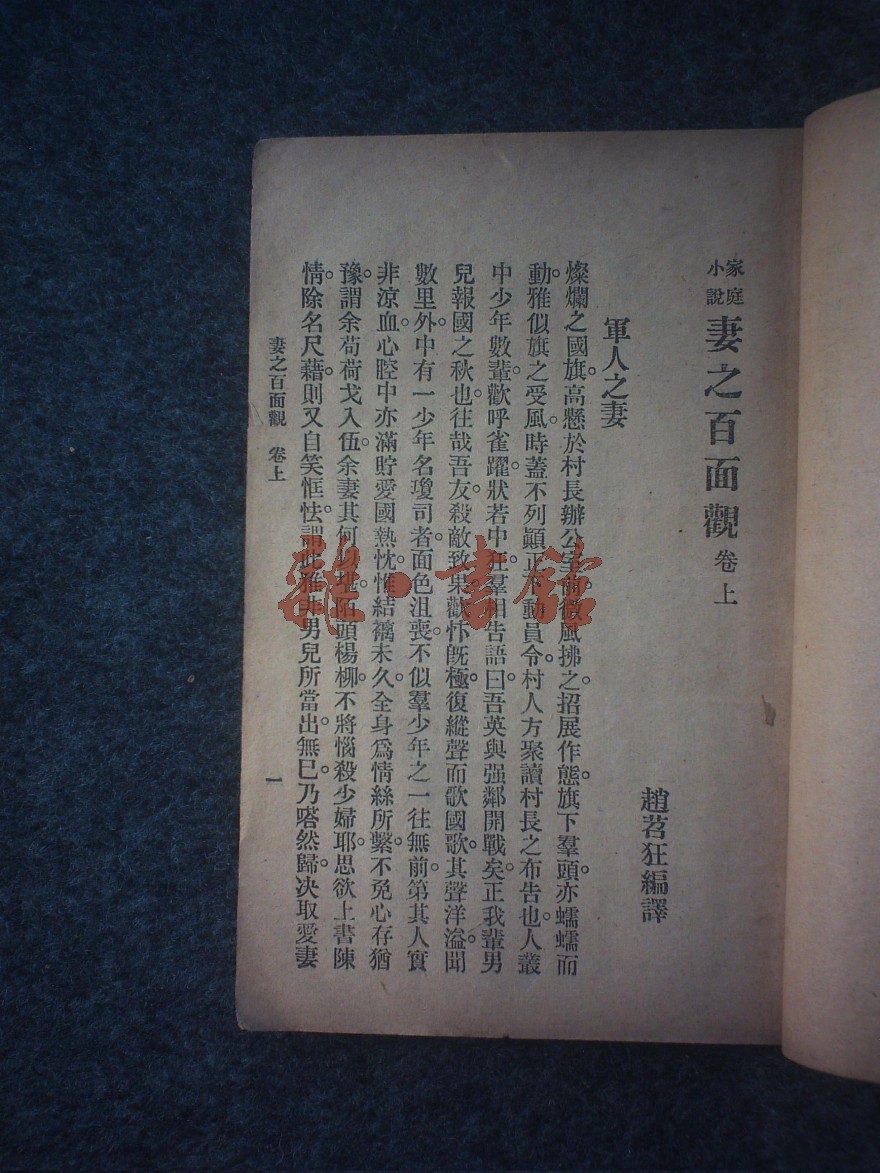 家庭小說 妻之百面觀 卷上
趙苕狂編譯
軍人之妻
燦爛之國旗。高懸於村長辦公室前。微風拂之。招展作態。旗下羣頭。亦蠕蠕而
動。雅似旗之受風。時蓋不列顛正下動員令。村人方聚讀村長之布告也。人叢
中少年數輩。歡呼雀躍。狀若中狂。羣相告語曰。吾英與强鄰開戰矣。正我輩男
兒報國之秋也。往哉吾友。殺敵致果。歡忭旣極。復縱聲而歌國歌。其聲洋溢。聞
數里外。中有一少年名瓊司者。面色沮喪。不似羣少年之一往無前。第其人實
非涼血。心腔中亦滿貯愛國熱忱。惟結褵未久。全身爲情絲所繫。不免心存猶
豫。謂余苟荷戈入伍。余妻其何以堪。陌頭楊柳。不將惱殺少婦耶。思欲上書陳
情。除名尺藉。則又自笑恇怯。謂此雅非男兒所當出。無已。乃嗒然歸。决取愛妻
妻之百面觀 卷上 一
雜·書館